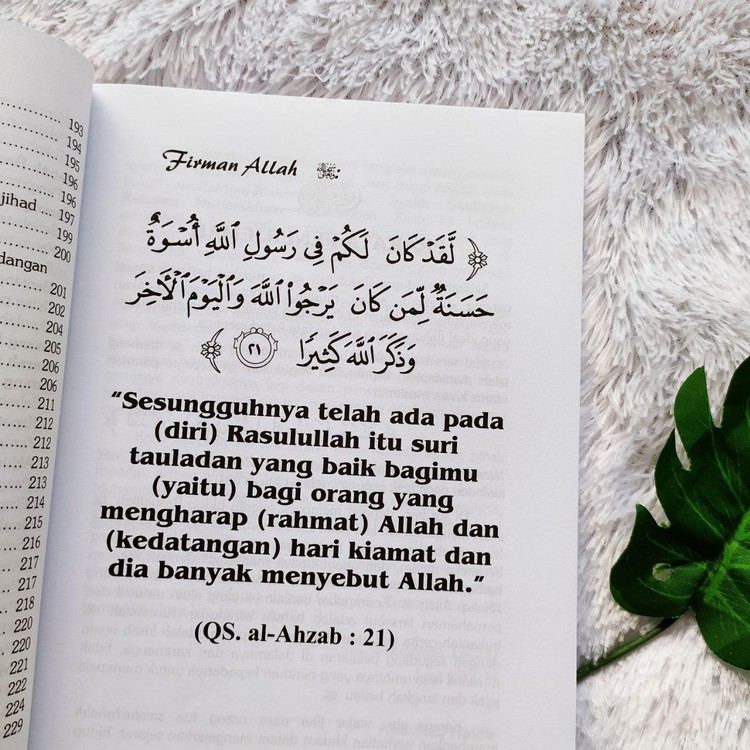 193
194
195
196
196
jihad ... 197
199
200
dangan
201
202
204
205
206
206
211
212
212
213
213
214
215
216
217
217
218
220
220
221
222
224
229
Firman Allah ﷻ:
لَّقَدْ كَانَ لَكُمْ فِى رَسُولِ ٱللَّهِ أُسْوَةٌ
حَسَنَةٌ لِّمَن كَانَ يَرْجُوا۟ ٱللَّهَ وَٱلْيَوْمَ ٱلْـَٔاخِرَ
وَذَكَرَ ٱللَّهَ كَثِيرًا ٢١
“Sesungguhnya telah ada pada
(diri) Rasulullah itu suri
tauladan yang baik bagimu
(yaitu) bagi orang yang
mengharap (rahmat) Allah dan
(kedatangan) hari kiamat dan
dia banyak menyebut Allah.”
(QS. al-Ahzab : 21)